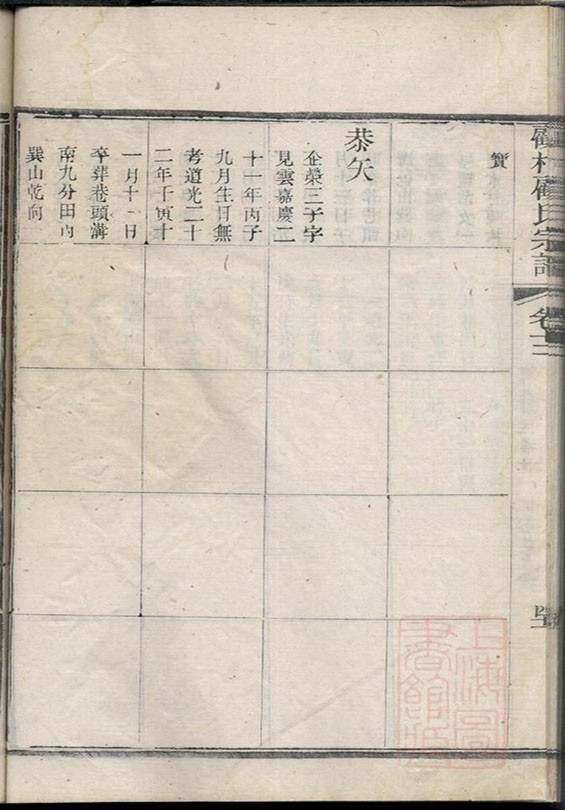 實
恭矢
企榮三子字
見雲嘉慶二
十一年丙子
九月生日無
考道光二十
二年壬寅十
一月十一日
卒葬巷頭溝
南九分田內
巽山乾向
顧氏宗譜
卷十二
上海圖書館藏